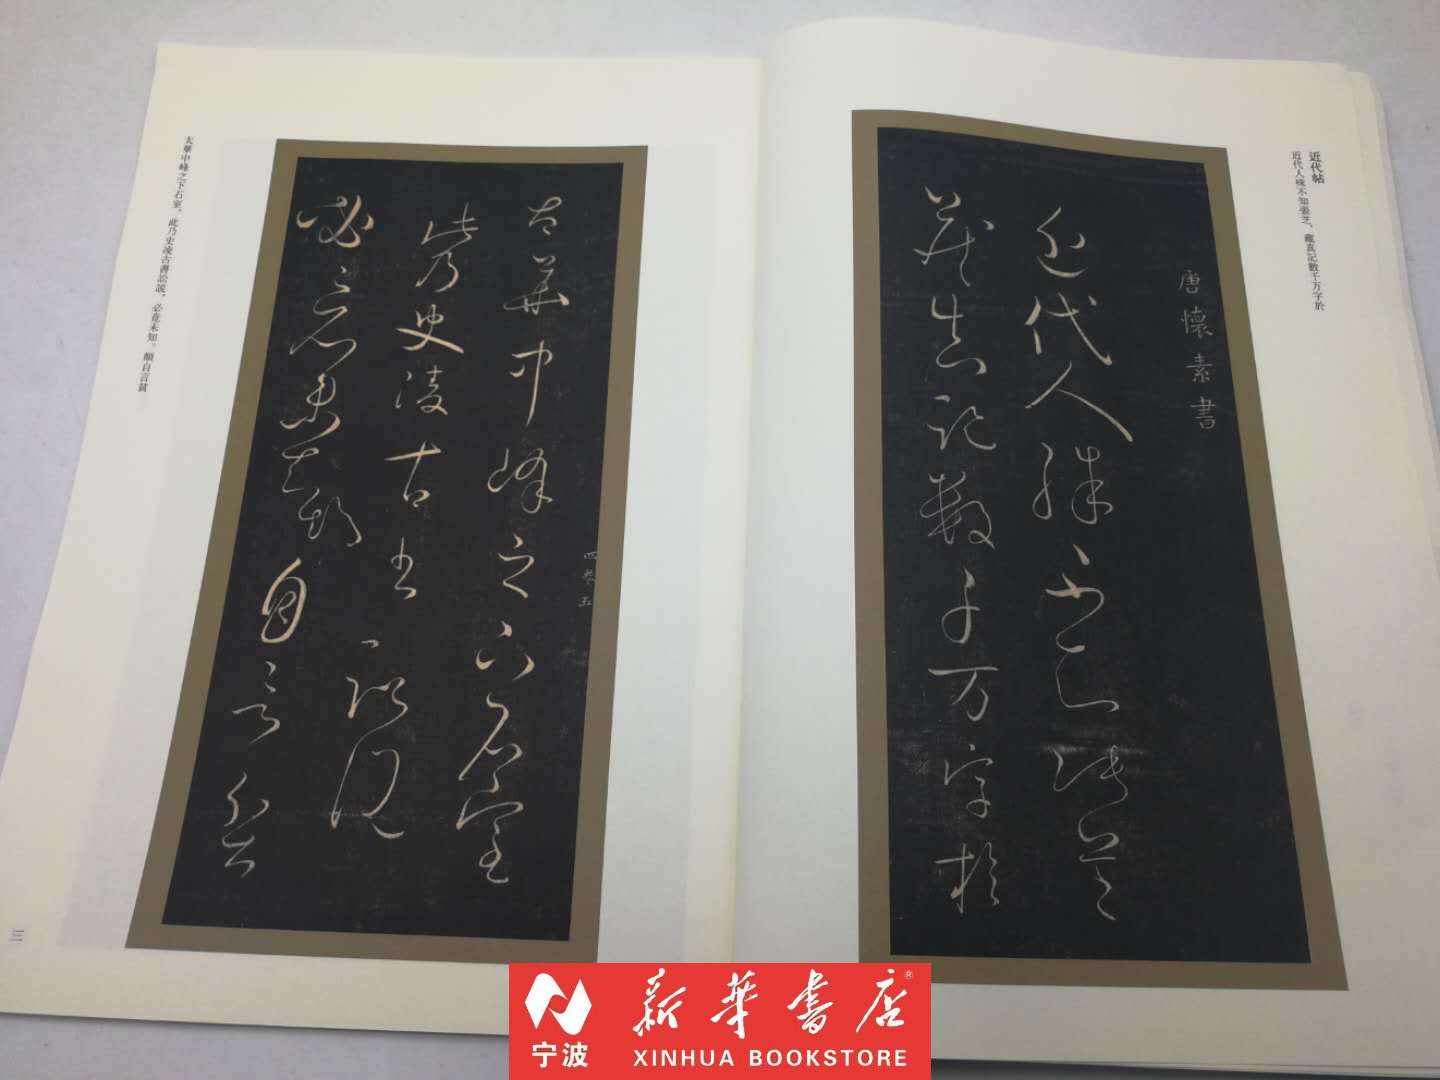 近代帖
近代人殊不知張芝,藏真記數千万字於
唐懷素書
近代人殊不知張芝
藏真記數千万字於
太華中峰之下石室,此乃史凌古書訟説,必竟未知。顛自言貧
四卷 五
太華中峰之下石室
此乃史凌古書
訟説
必竟未知顛
自言貧
三
新華書店®
宁波
XINHUA BOOKSTORE